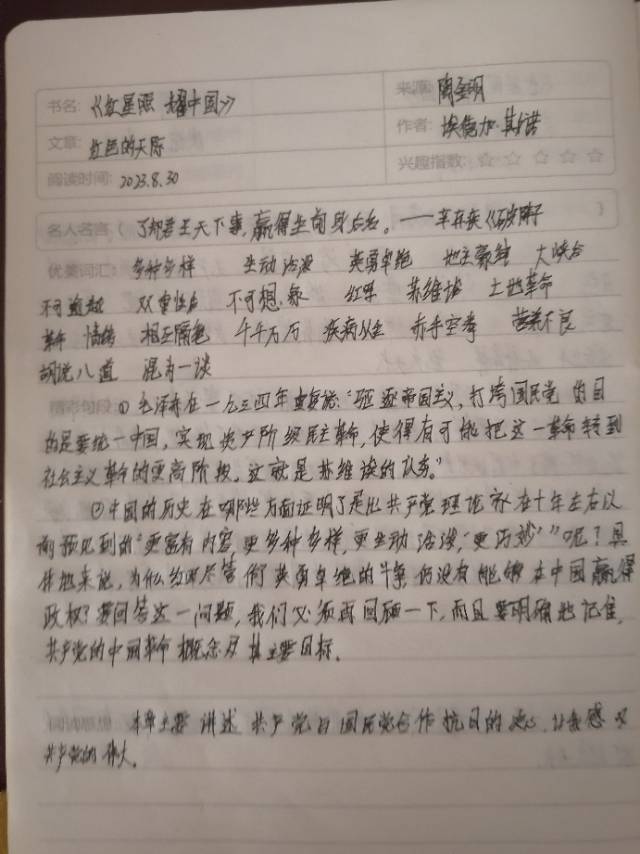 书名: 《红星照耀中国》 来源: 陶金明
文章: 红色的天际 作者: 埃德加·斯诺
阅读时间: 2023.8.30 兴趣指数: ☆ ☆ ☆ ☆ ☆
名人名言 ( 了却君王天下事,赢得生前身后名。——辛弃疾《破阵子 )
优美词汇: 多种多样 生动活泼 英勇卓绝 地主豪绅 大峡谷
不可逾越 双重性 不可想象 红军 苏维埃 土地革命
革命 情绪 相互隔绝 千千万万 疾病丛生 赤手空拳 营养不良
胡说八道 混为一谈
精彩句段: ①毛泽东在一九三四年重复说:“驱逐帝国主义,打垮国民党 的目
的是要统一中国,实现资产阶级民主革命,使得有可能把这一革命转到
社会主义革命的更高阶段。这就是苏维埃的任务。”
②中国的历史在哪些方面证明了是比共产党理论家在十年左右以
前预见到的“更富有内容,更多种多样,更生动活泼,“更巧妙””呢?具
体地来说,为什么红军尽管他们英勇卓绝的斗争仍没有能够在中国赢得
政权?要回答这一问题,我们必须再回顾一下,而且要明确地记住,
共产党的中国革命概念及其主要目标。
本章主要讲述共产党与国民党合作抗日的决心,让我感受
共产党的伟大。